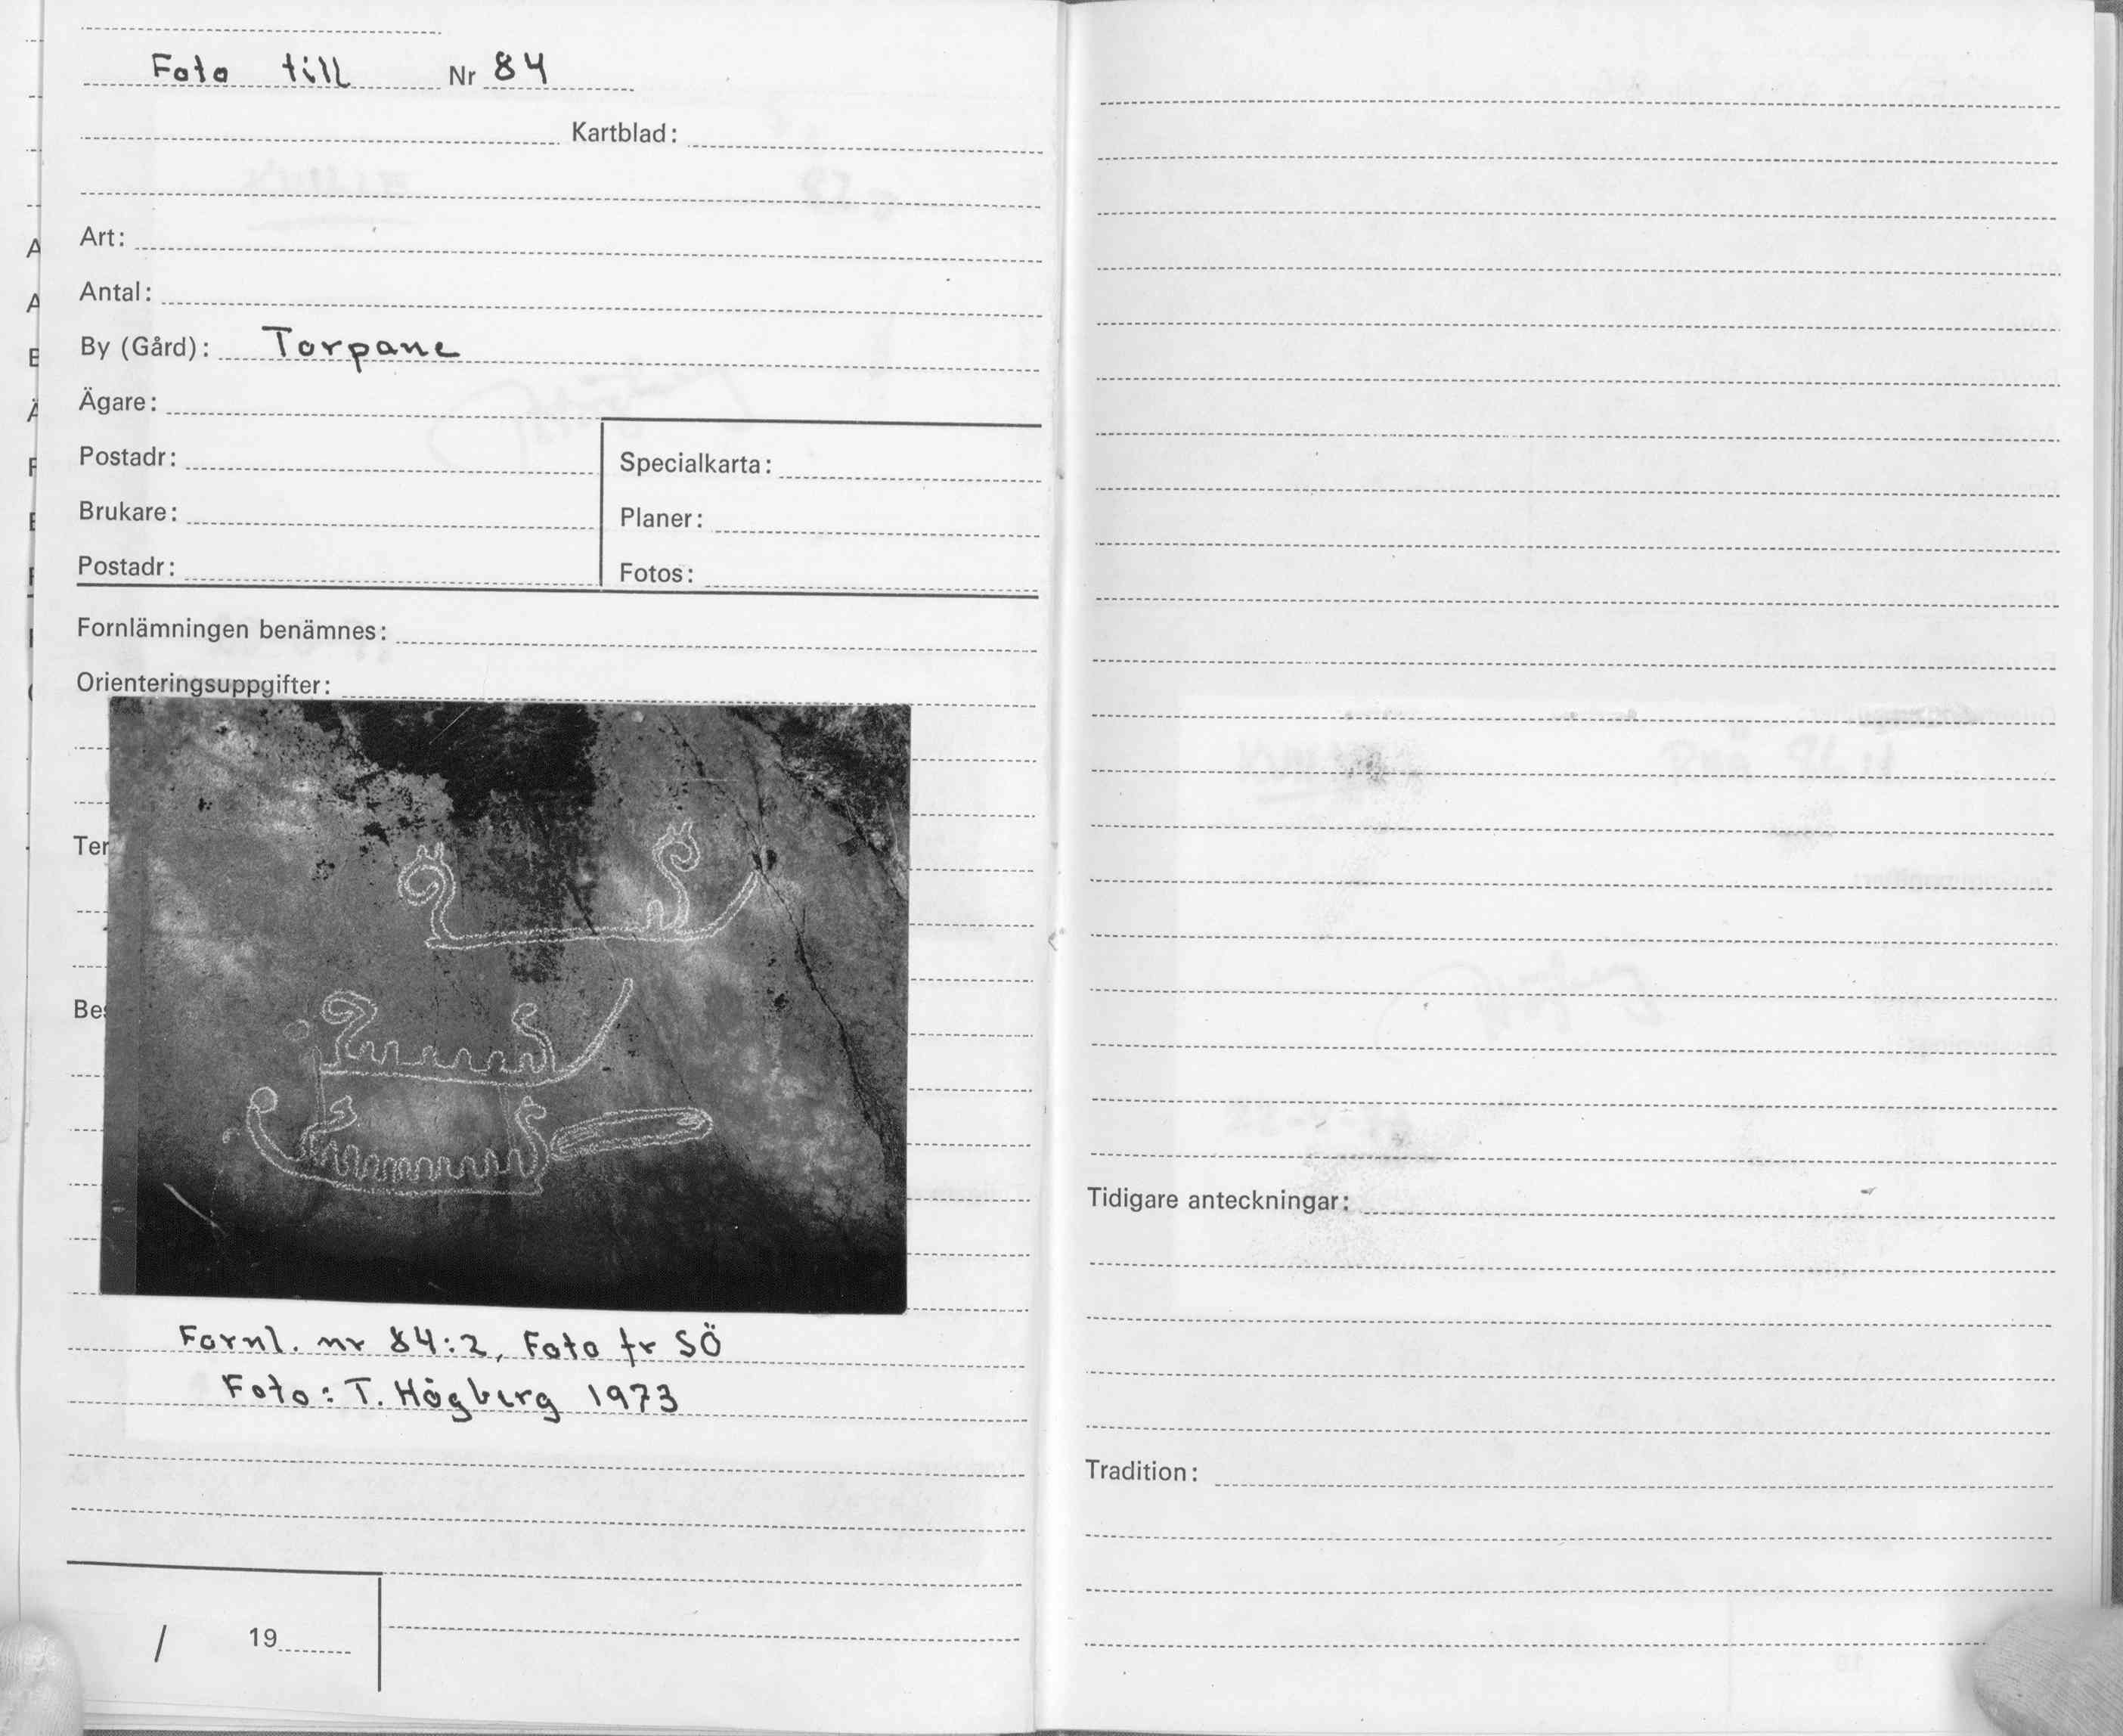 Foto till Nr 84
Kartblad:
Art:
Antal:
By (Gård): Torpane
Ägare:
Postadr:
Specialkarta:
Brukare:
Planer:
Postadr:
Fotos:
Fornlämningen benämnes:
Orienteringsuppgifter:
Ter
Bes
Fornl. nr 84:2, Foto fr SÖ
Foto: T. Högberg 1973
/ 19
Tidigare anteckningar:
Tradition: